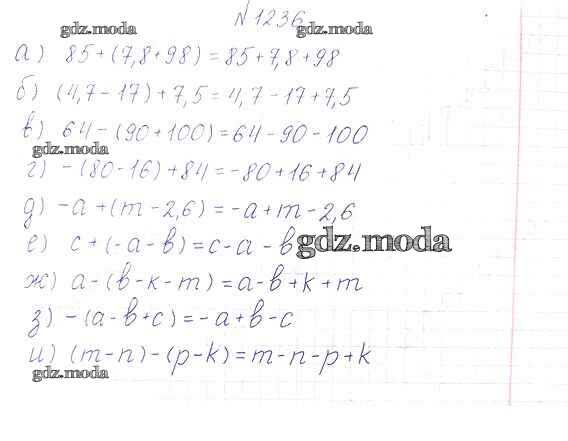 №1236
gdz.moda gdz.moda
а) 85+(7,8+98)=85+7,8+98
б) (4,7-17)+7,5=4,7-17+7,5
в) 64-(90+100)=64-90-100
gdz.moda
г) -(80-16)+84=-80+16+84
д) -а+(m-2,6)=-а+m-2,6
е) с+(-а-в)=с-а-в
gdz.moda
ж) а-(в-к-m)=а-в+k+m
з) -(а-в+с)=-а+в-с
и) (m-n)-(p-k)=m-n-p+k
gdz.moda